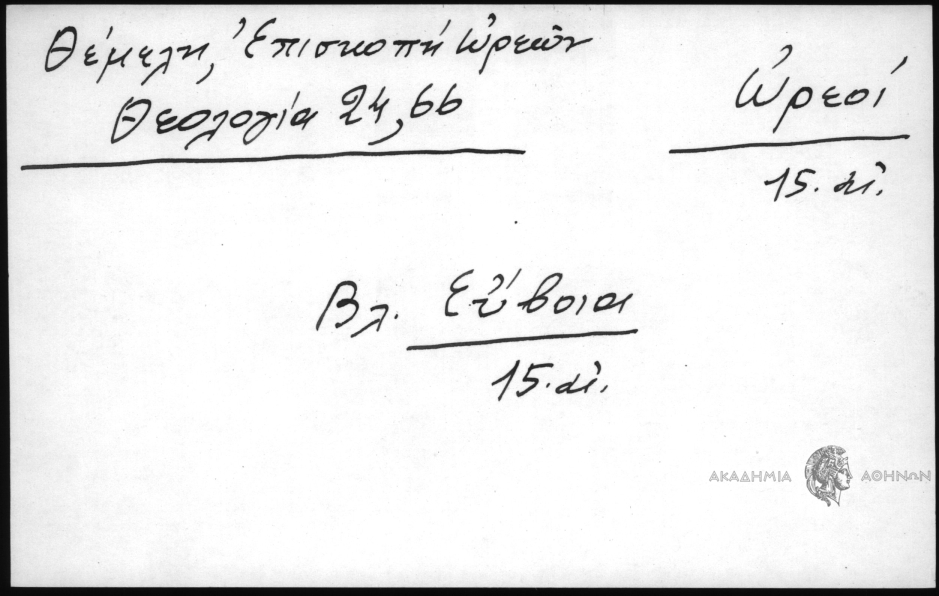 Θέμελη, Ἐπισκοπή Ὠρεῶν
Θεολογία 24, 66
Ὠρεοί
15. αἰ.
Βλ. Εὔβοια
15. αἰ.
ΑΚΑΔΗΜΙΑ ΑΘΗΝΩΝ